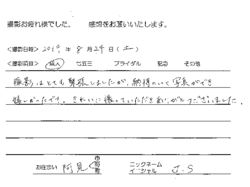 撮影お疲れ様でした。 感想をお願いいたします。
<撮影日時> 2019年 8月 29日(土)
<撮影項目> 成人 七五三 ブライダル 記念 その他
撮影はとても緊張しましたが、納得のいく写真ができ
嬉しかったです。きれいに撮っていただきありがとうございました。
お住まい 阿見 ニックネーム イニシャル J.S